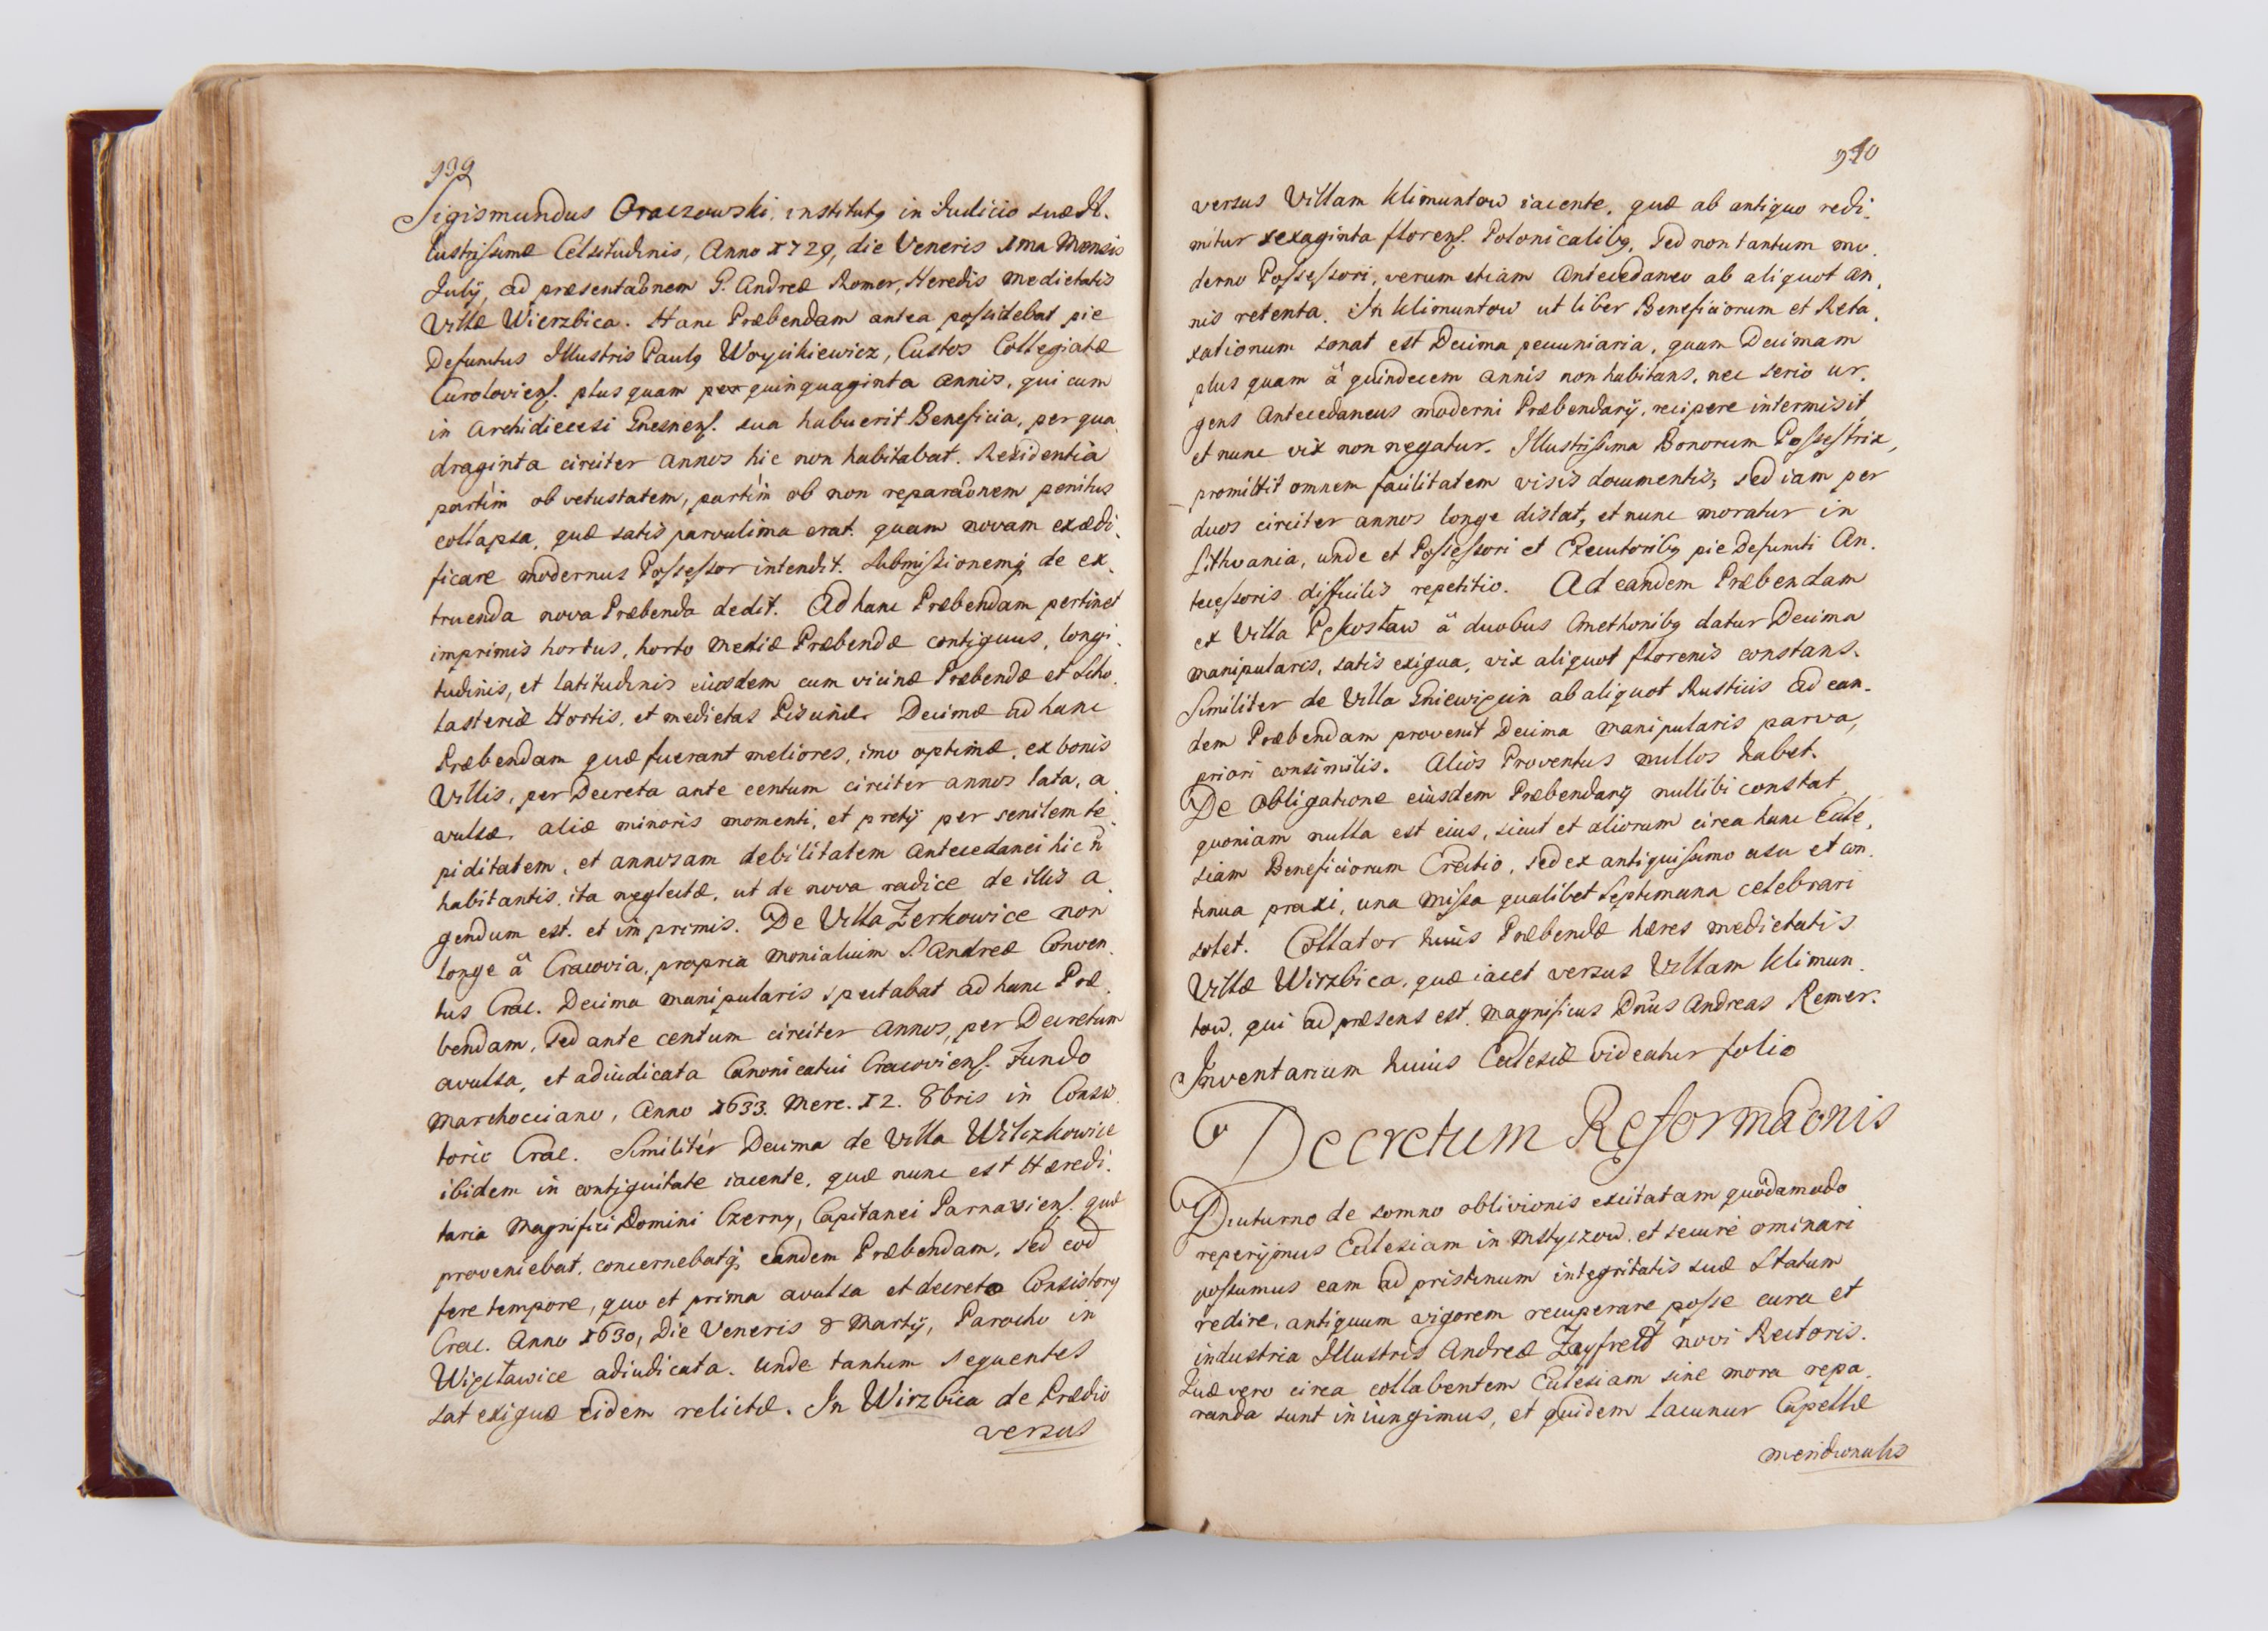 939
Sigismundus Oraczowski, institutq in Iudicio suæ Il.
lustrissimæ Celsitudinis, Anno 1729, die Veneris 1ma Mensis
Iulij, ad præsentaõnem G. Andreæ Romer, Heredis Medietatis
Villæ Wierzbica. Hanc Præbendam antea possidebat pie
Defunctus Illustris Paulq Woycikiewicz, Custos Collegiatæ
Curoloviens. plus quam quinquaginta Annis, qui cum
in Archidiecesi Gnesnens. sua habuerit Beneficia, per qua
draginta circiter Annos hic non habitabat. Residentia
partim ob vetustatem, partim ob non reparaõnem penitus
collapsa, quæ satis parvulima erat. quam novam exædi.
ficare modernus Possessor intendit. Submissionemq; de ex.
truenda nova Præbenda dedit. Ad hanc Præbendam pertinet
imprimis hortus, horto Mediæ Præbendæ contiguus, longi.
tudinis, et latitudinis eiusdem cum vicinæ Præbendæ et Scho.
lasteriæ Hortis, et medietas Piscinæ. Decimæ ad hanc
Præbendam quæ fuerant meliores, imo optimæ, ex bonis
Villis, per Decreta ante centum circiter annos lata, a
avulsæ, aliæ minoris momenti, et pretij per senilem te.
piditatem, et annosam debilitatem Antecedanei hic n̄
habitantis, ita neglectæ, ut de nova radice de illis a.
gendum est. et imprimis. De Villa Zerkowice non
longe â Cracovia, propria Monialium S. Andreæ Conven.
tus Crac. Decima manipularis spectabat ad hanc Præ.
bendam, sed ante centum circiter annos, per Decretum
avulsa, et adiudicata Canonicatui Cracoviens. Fundo
Marchocciano, Anno 1633. Merc. 12. 8bris in Consis.
torio Crac. Similiter Decima de Villa Wilczkowice
ibidem in contiguitate iacente, quæ nunc est Hæredi.
taria Magnifici Domini Czerny, Capitanei Parnaviens. quæ
proveniebat, concernebatq; eandem Præbendam, sed eod
fere tempore, quo et prima avulsa et decreto Consistorij
Crac. Anno 1630, Die Veneris 8 Martij, Parocho in
Więcławice adiudicata. Unde tantum sequentes
sat exiguæ eidem relictæ. In Wirzbica de Prædio
versus
940
versus Villam Klimuntow iacente, quæ ab antiquo redi.
mitur sexaginta florens. Polonicalibq, sed non tantum mo.
derno Possessori, verum etiam Antecedaneo ab aliquot an.
nis retenta. In Klimuntow ut liber Beneficiorum et Reta.
xationum sonat est Decima pecuniaria, quam Decimam
plus quam â quindecem annis non habitans, nec serio ur.
gens Antecedaneus moderni Præbendarij, recipere intermisit,
et nunc vix non negatur. Illustrissima Bonorum Possestrix,
promittit omnem facilitatem visis documentis, sed iam per
duos circiter annos longe distat, et nunc moratur in
Lithvania, unde et Possessori et Executoribq pie Defuncti An.
tecessoris difficilis repetitio. Ad eandem Præbendam
ex Villa Pękosław â duobus Cmethonibq datur Decima
manipularis, satis exigua, vix aliquot florenis constans.
Similiter de Villa Gniewięcin ab aliquot Rusticis ad ean.
dem Præbendam provenit Decima manipularis parva,
priori consimilis. Alios Proventus nullos habet.
De obligatione eiusdem Præbendarij nullibi constat,
quoniam nulla est eius, sicut et aliorum circa hanc Eccle.
siam Beneficiorum Erectio, sed ex antiquissimo usu et con.
tinua praxi, una Missa qualibet septimana celebrari
solet. Collator huius Præbendæ hæres medietatis
Villæ Wirzbica, quæ iacet versus Villam Klimun.
tow, qui ad præsens est, Magnificus Dnus Andreas Remer.
Inventarium huius Ecclesiæ videatur folio
Decretum Reformaõnis
Diuturno de somno oblivionis excitatam quôdamodo
reperijmus Ecclesiam in Mstyczow, et secure ominari
possumus eam ad pristinum integritatis suæ Statum
redire, antiquum vigorem recuperare posse cura et
industria Illustris Andreæ Zayfrett novi Rectoris.
Quæ vero circa collabentem Ecclesiam sine mora repa.
randa sunt iniungimus, et quidem lacunar Capellæ
meridionalis